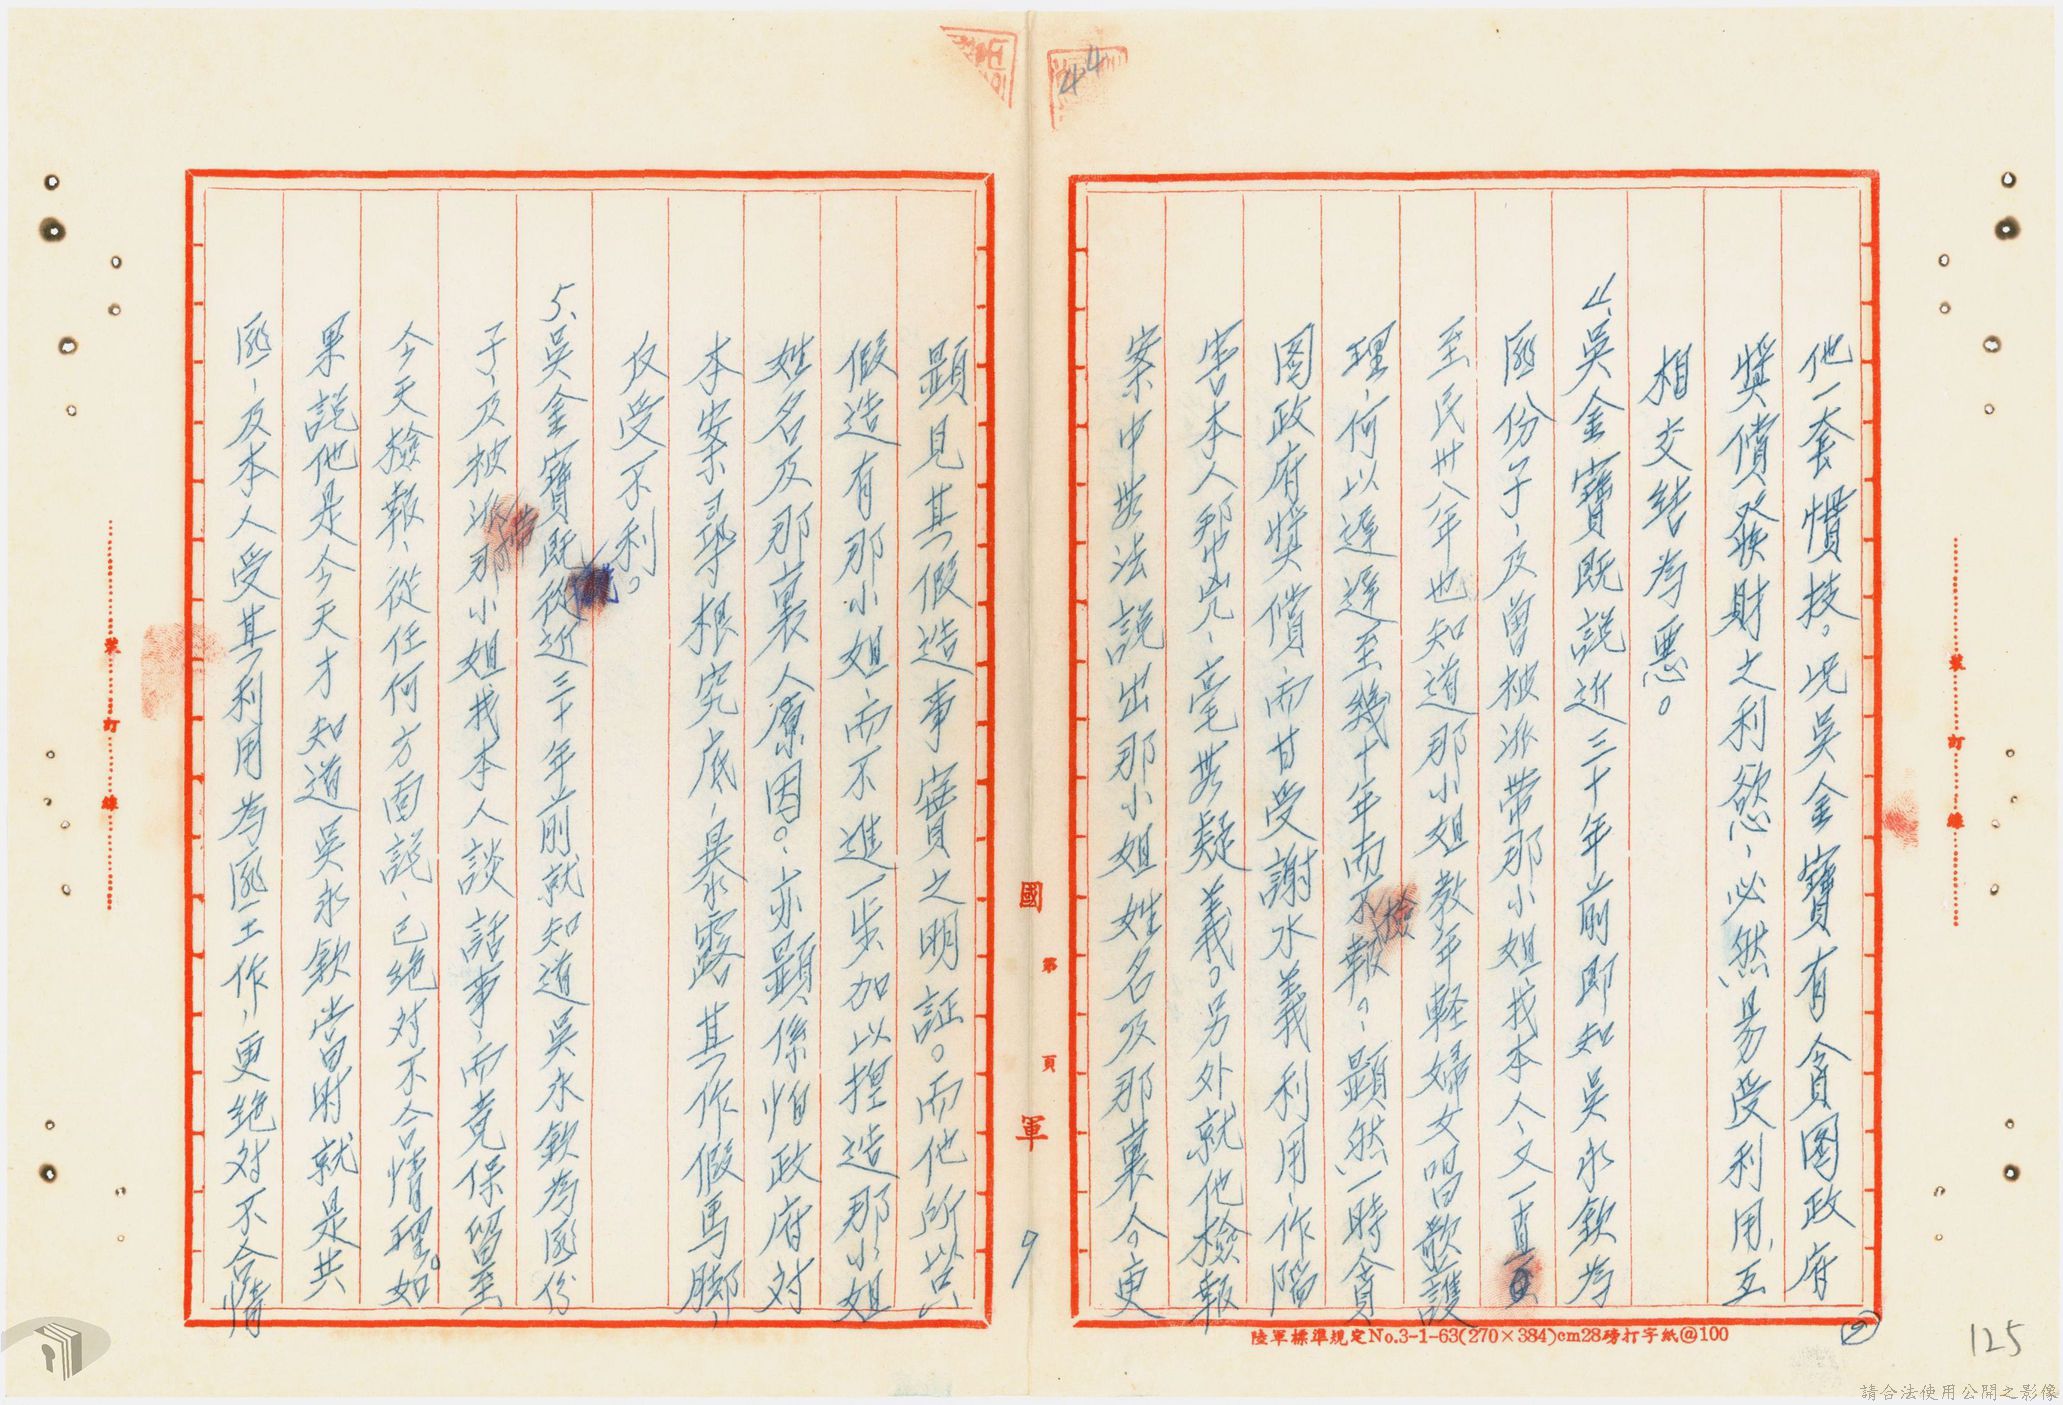 44
他一套慣技。况吳金寶有貪图政府
獎償發財之利慾、必然易受利用、互
相交结為惡。
4、吳金寶既説近三十年前即知吳永欽為
匪份子、及曾被派带那小姐、找本人、又一直
至民卅八年也知道那小姐教年軽婦女唱歌護
理、何以遅遅至幾十年而不檢報。、顕然一時貪
图政府獎償、而甘受謝水義利用、作陥
害本人帮兇、毫無疑義。另外就他檢報
案中無法説出那小姐姓名及那裏人。更
⑨
陸軍標準規定No.3-1-63(270×384)cm28磅打字紙@100
125
裝 訂 線
國 軍
第 頁
9
顕見其假造事實之明証。而他所以
假造有那小姐、而不進一步加以捏造那小姐
姓名及那裏人原因。、亦顕係怕政府対
本案尋根究底、暴露其作假馬脚、
反受不利。
5、吳金寶既從近三十年前就知道吳永欽為匪份
子、及被派帶那小姐找本人談話事、而竟保留至
今天檢報、從任何方面説、已绝对不合情理。如
果説他是今天才知道吳永欽当时就是共
匪、及本人受其利用為匪工作、更绝对不合情
裝 訂 線
請合法使用公開之影像